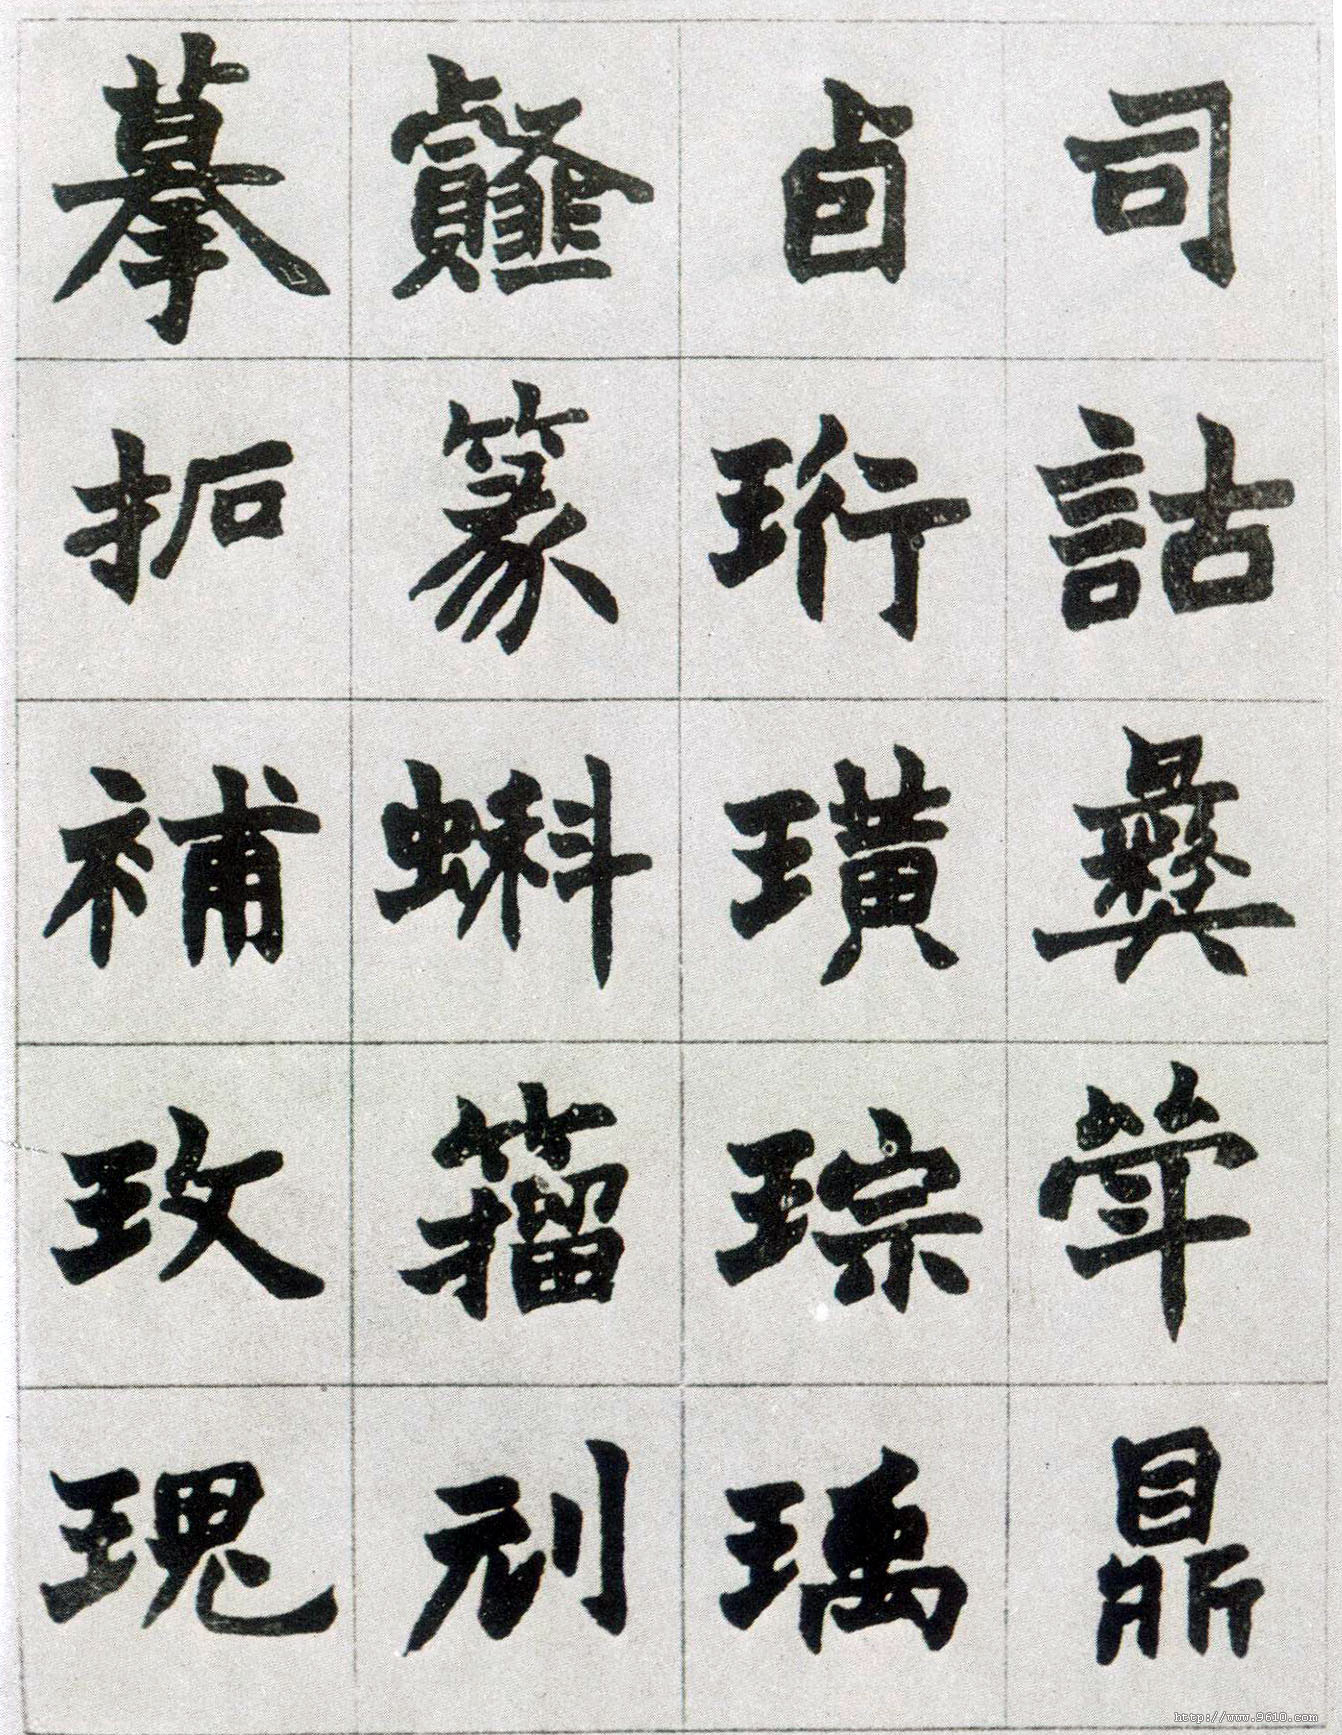 司詁彝斝鼎
卣珩璜琮瑀
篆蝌籀刓
摹拓補玫瑰
http://www.9610.com